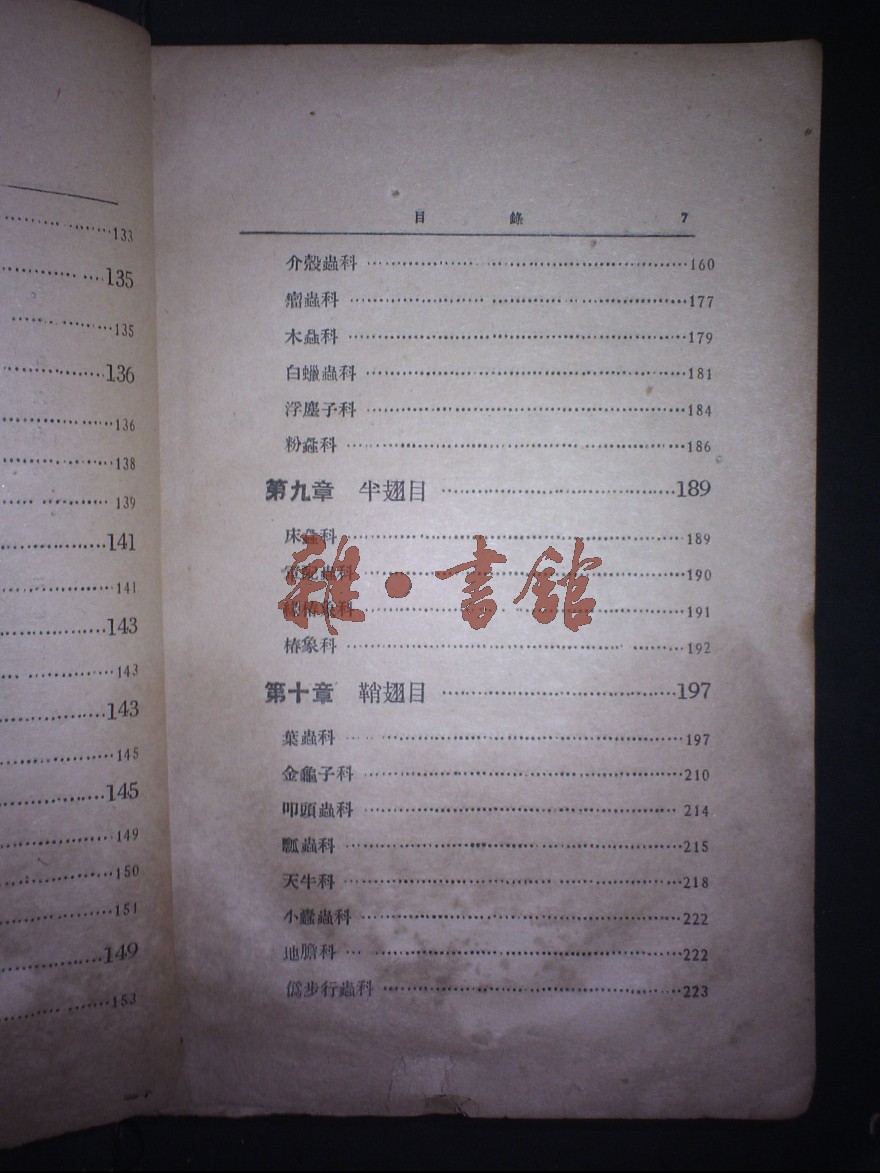 133
135
135
136
136
138
139
141
141
143
143
143
145
145
149
150
151
149
153
目 錄 7
介殼蟲科 160
瘤蟲科 177
木蝨科 179
白蠟蟲科 181
浮塵子科 184
粉蝨科 186
第九章 半翅目 189
床蝨科 189
軍配蟲科 190
椿象科 191
椿象科 192
第十章 鞘翅目 197
葉蟲科 197
金龜子科 210
叩頭蟲科 214
瓢蟲科 215
天牛科 218
小蠹蟲科 222
地膽科 222
僞步行蟲科 223
雜·書館